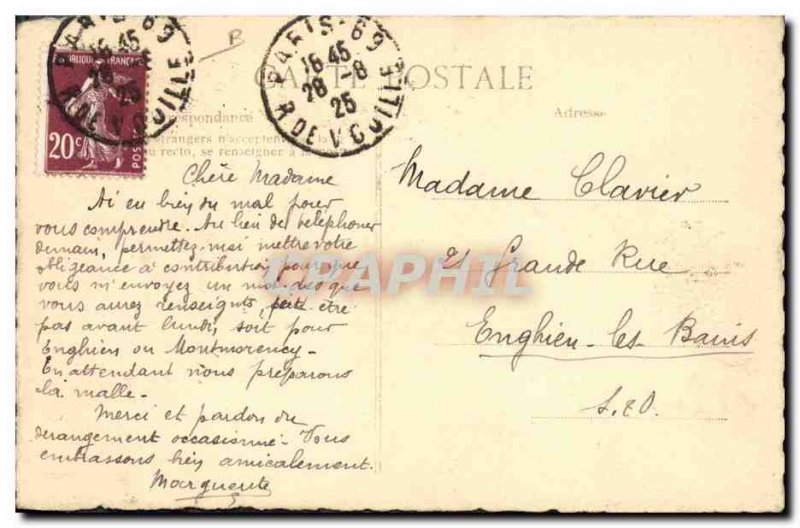 PARIS - 69
16 45
28 - 8
25
R. DE VOUILLÉ
RÉPUBLIQUE FRANÇAISE
20c
POSTES
PARIS - 69
16 45
28 - 8
25
R. DE VOUILLÉ
CARTE POSTALE
Correspondance
Adresse
étrangers n'acceptent
recto, se renseigner à la
Chère Madame
Ai eu bien du mal pour
vous comprendre. Au lieu de telephoner
demain, permettez-moi mettre votre
obligeance à contribution pour que
vous m'envoyez un mot dès que
vous aurez renseignts, peut être
pas avant lundi, soit pour
Enghien ou Montmorency -
En attendant nous préparons
la malle -
Merci et pardon du
derangement occasionné - Vous
embrassons bien amicalement.
Marguerite
Madame Clavier
21 Grande Rue
Enghien-les-Bains
S. & O.
CPAPHIL